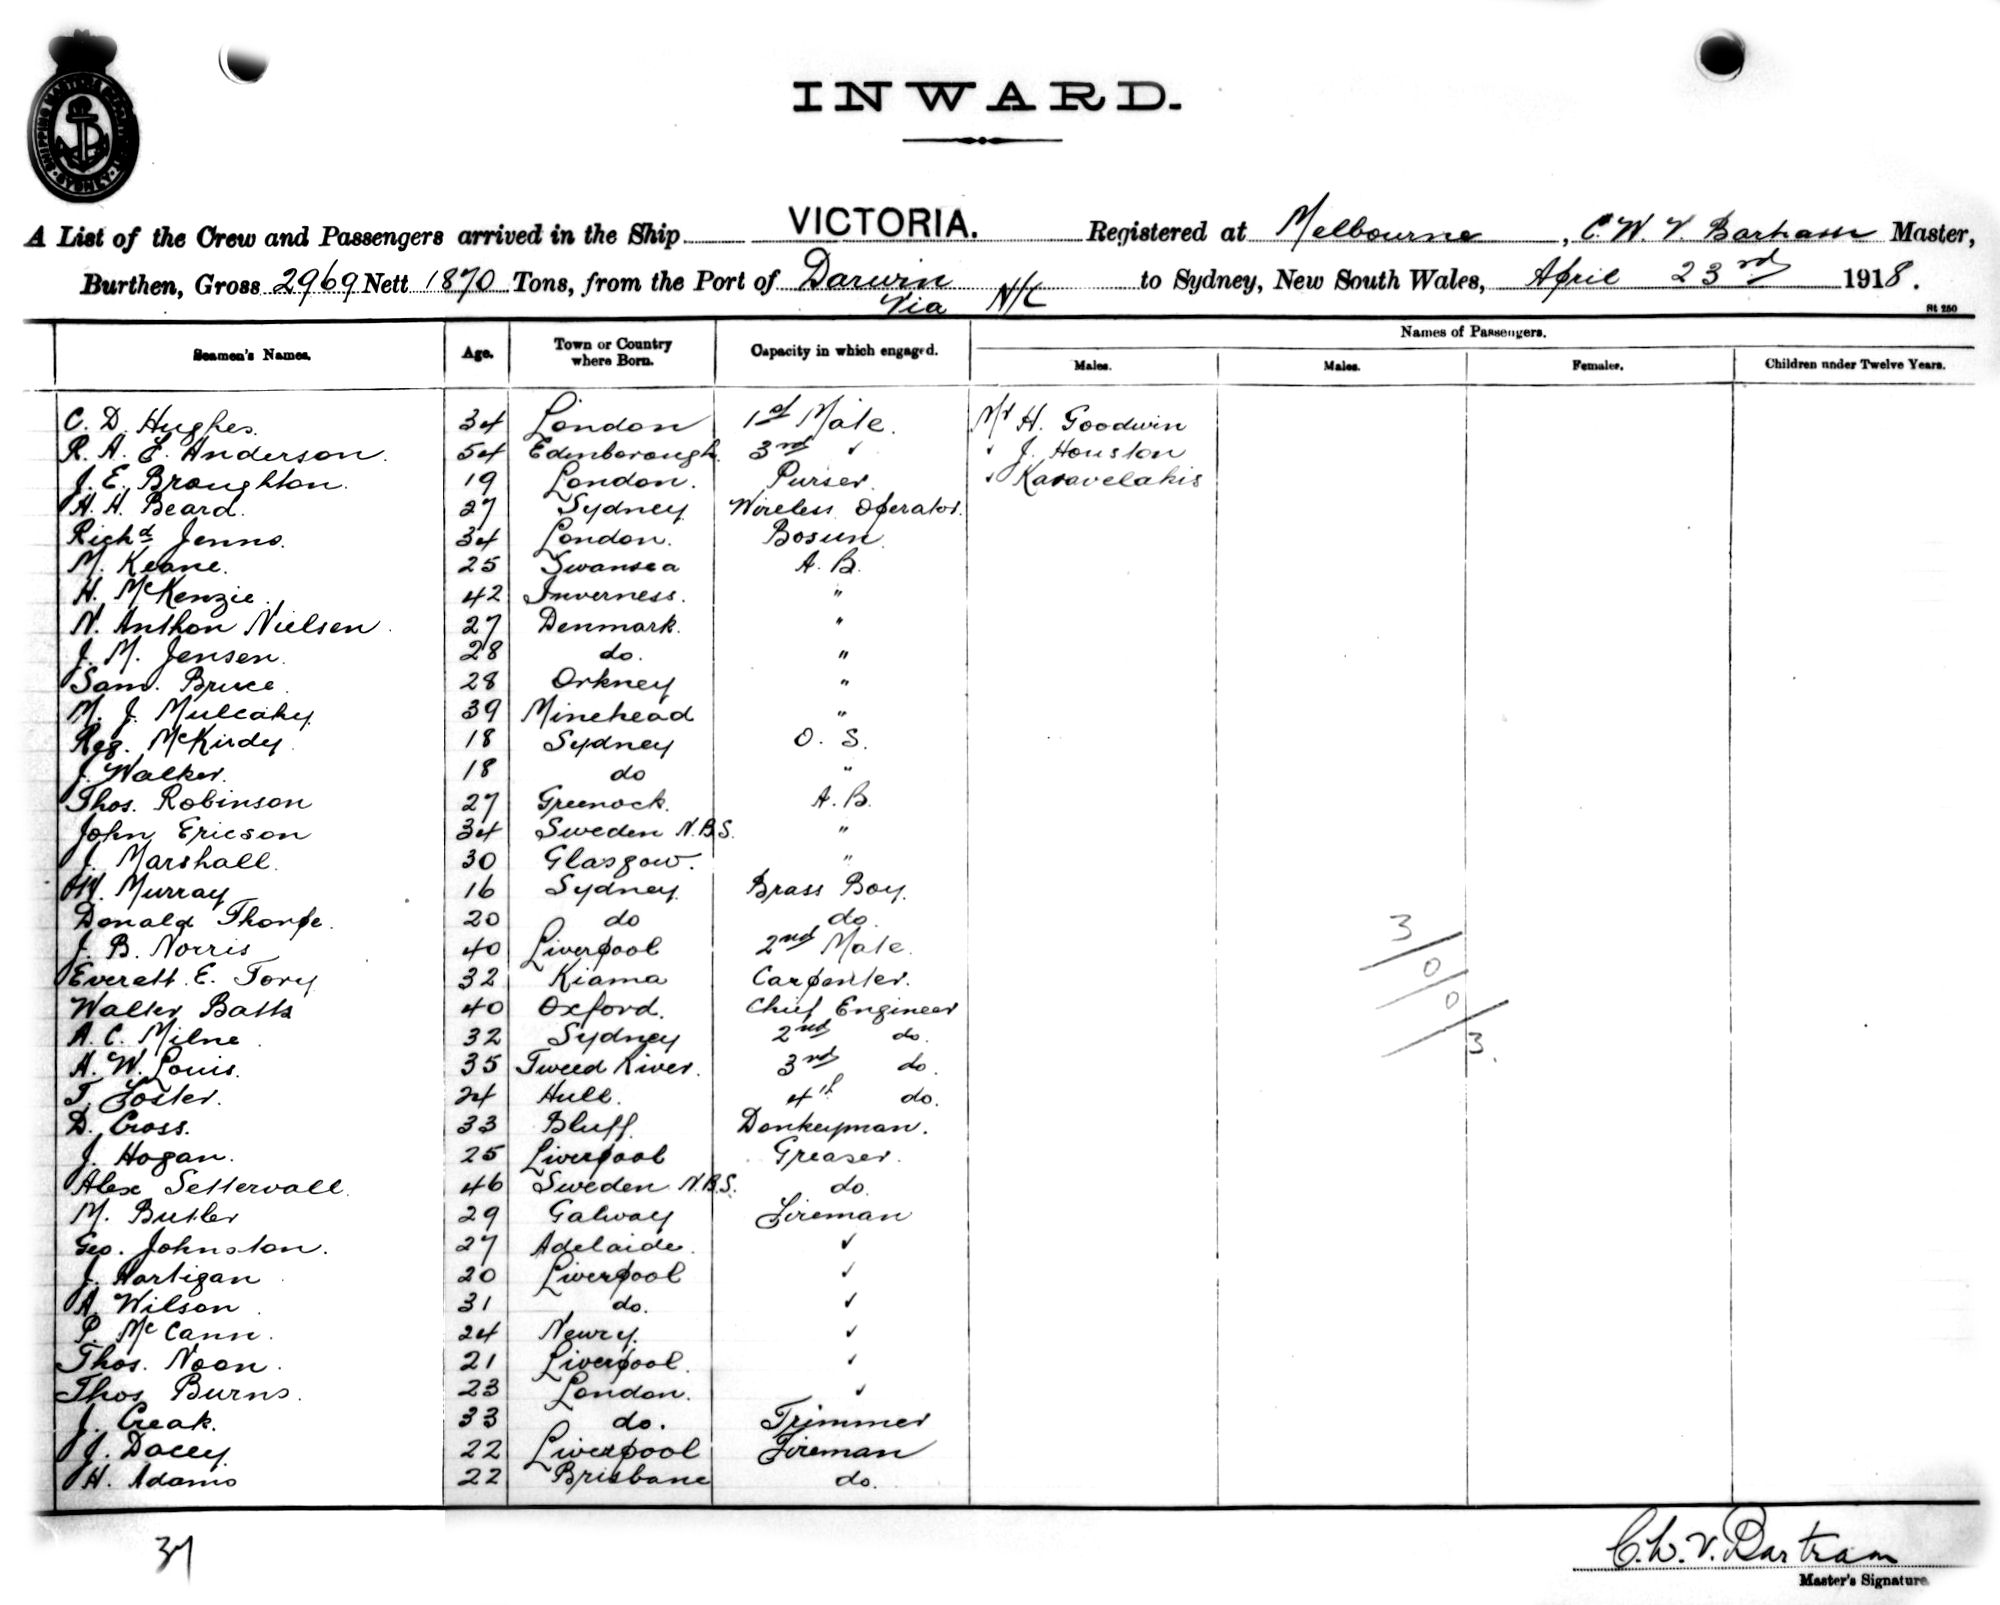 SHIPPING MASTER'S DEPARTMENT SYDNEY
INWARD.
A List of the Crew and Passengers arrived in the Ship VICTORIA. Registered at Melbourne, C. W. V. Bartram Master,
Burthen, Gross 2969 Nett 1870 Tons, from the Port of Darwin to Sydney, New South Wales, April 23rd 1918.
Via N/C
St 250
Seamen's Names. Age. Town or Country where Born. Capacity in which engaged. Names of Passengers.
Males. Males. Females. Children under Twelve Years.
C. D. Hughes. 34 London 1st Mate. Mr H. Goodwin
R. A. F. Anderson. 54 Edinborough. 3rd ✓ ✓ J. Houston
J. E. Broughton. 19 London. Purser. ✓ Karavelakis
H. H. Beard. 27 Sydney Wireless Operator.
Richd Jenns. 34 London. Bosun.
M. Keane. 25 Swansea A. B.
H. McKenzie. 42 Inverness. "
N. Anthon Nielsen. 27 Denmark. "
J. M. Jensen. 28 do. "
Sam. Bruce. 28 Orkney "
M. J. Mulcahy. 39 Minehead "
Reg. McKirdy. 18 Sydney O. S.
J. Walker. 18 do "
Thos. Robinson 27 Greenock. A. B.
John Ericson 34 Sweden N.B.S. "
J. Marshall. 30 Glasgow. "
W. Murray 16 Sydney. Brass Boy.
Donald Thorpe. 20 do do.
J. B. Norris 40 Liverpool 2nd Mate.
Everett. E. Tory 32 Kiama Carpenter.
Walter Batts 40 Oxford. Chief Engineer
A. C. Milne. 32 Sydney 2nd do.
A. W. Louis. 35 Tweed River. 3rd do.
T. Foster. 24 Hull. 4th do.
D. Cross. 33 Bluff. Donkeyman.
J. Hogan. 25 Liverpool Greaser.
Alex Settervall. 46 Sweden N.B.S. do.
M. Butler 29 Galway Fireman
Geo. Johnston. 27 Adelaide. ✓
J. Hartigan. 20 Liverpool ✓
A. Wilson. 31 do. ✓
P. McCann. 24 Newry. ✓
Thos. Noon. 21 Liverpool. ✓
Thos Burns. 23 London. ✓
J. Creak. 33 do. Trimmer
J. Dacey. 22 Liverpool Fireman
H. Adams 22 Brisbane do.
3/0/0/3.
37
C. W. V. Bartram
Master's Signature